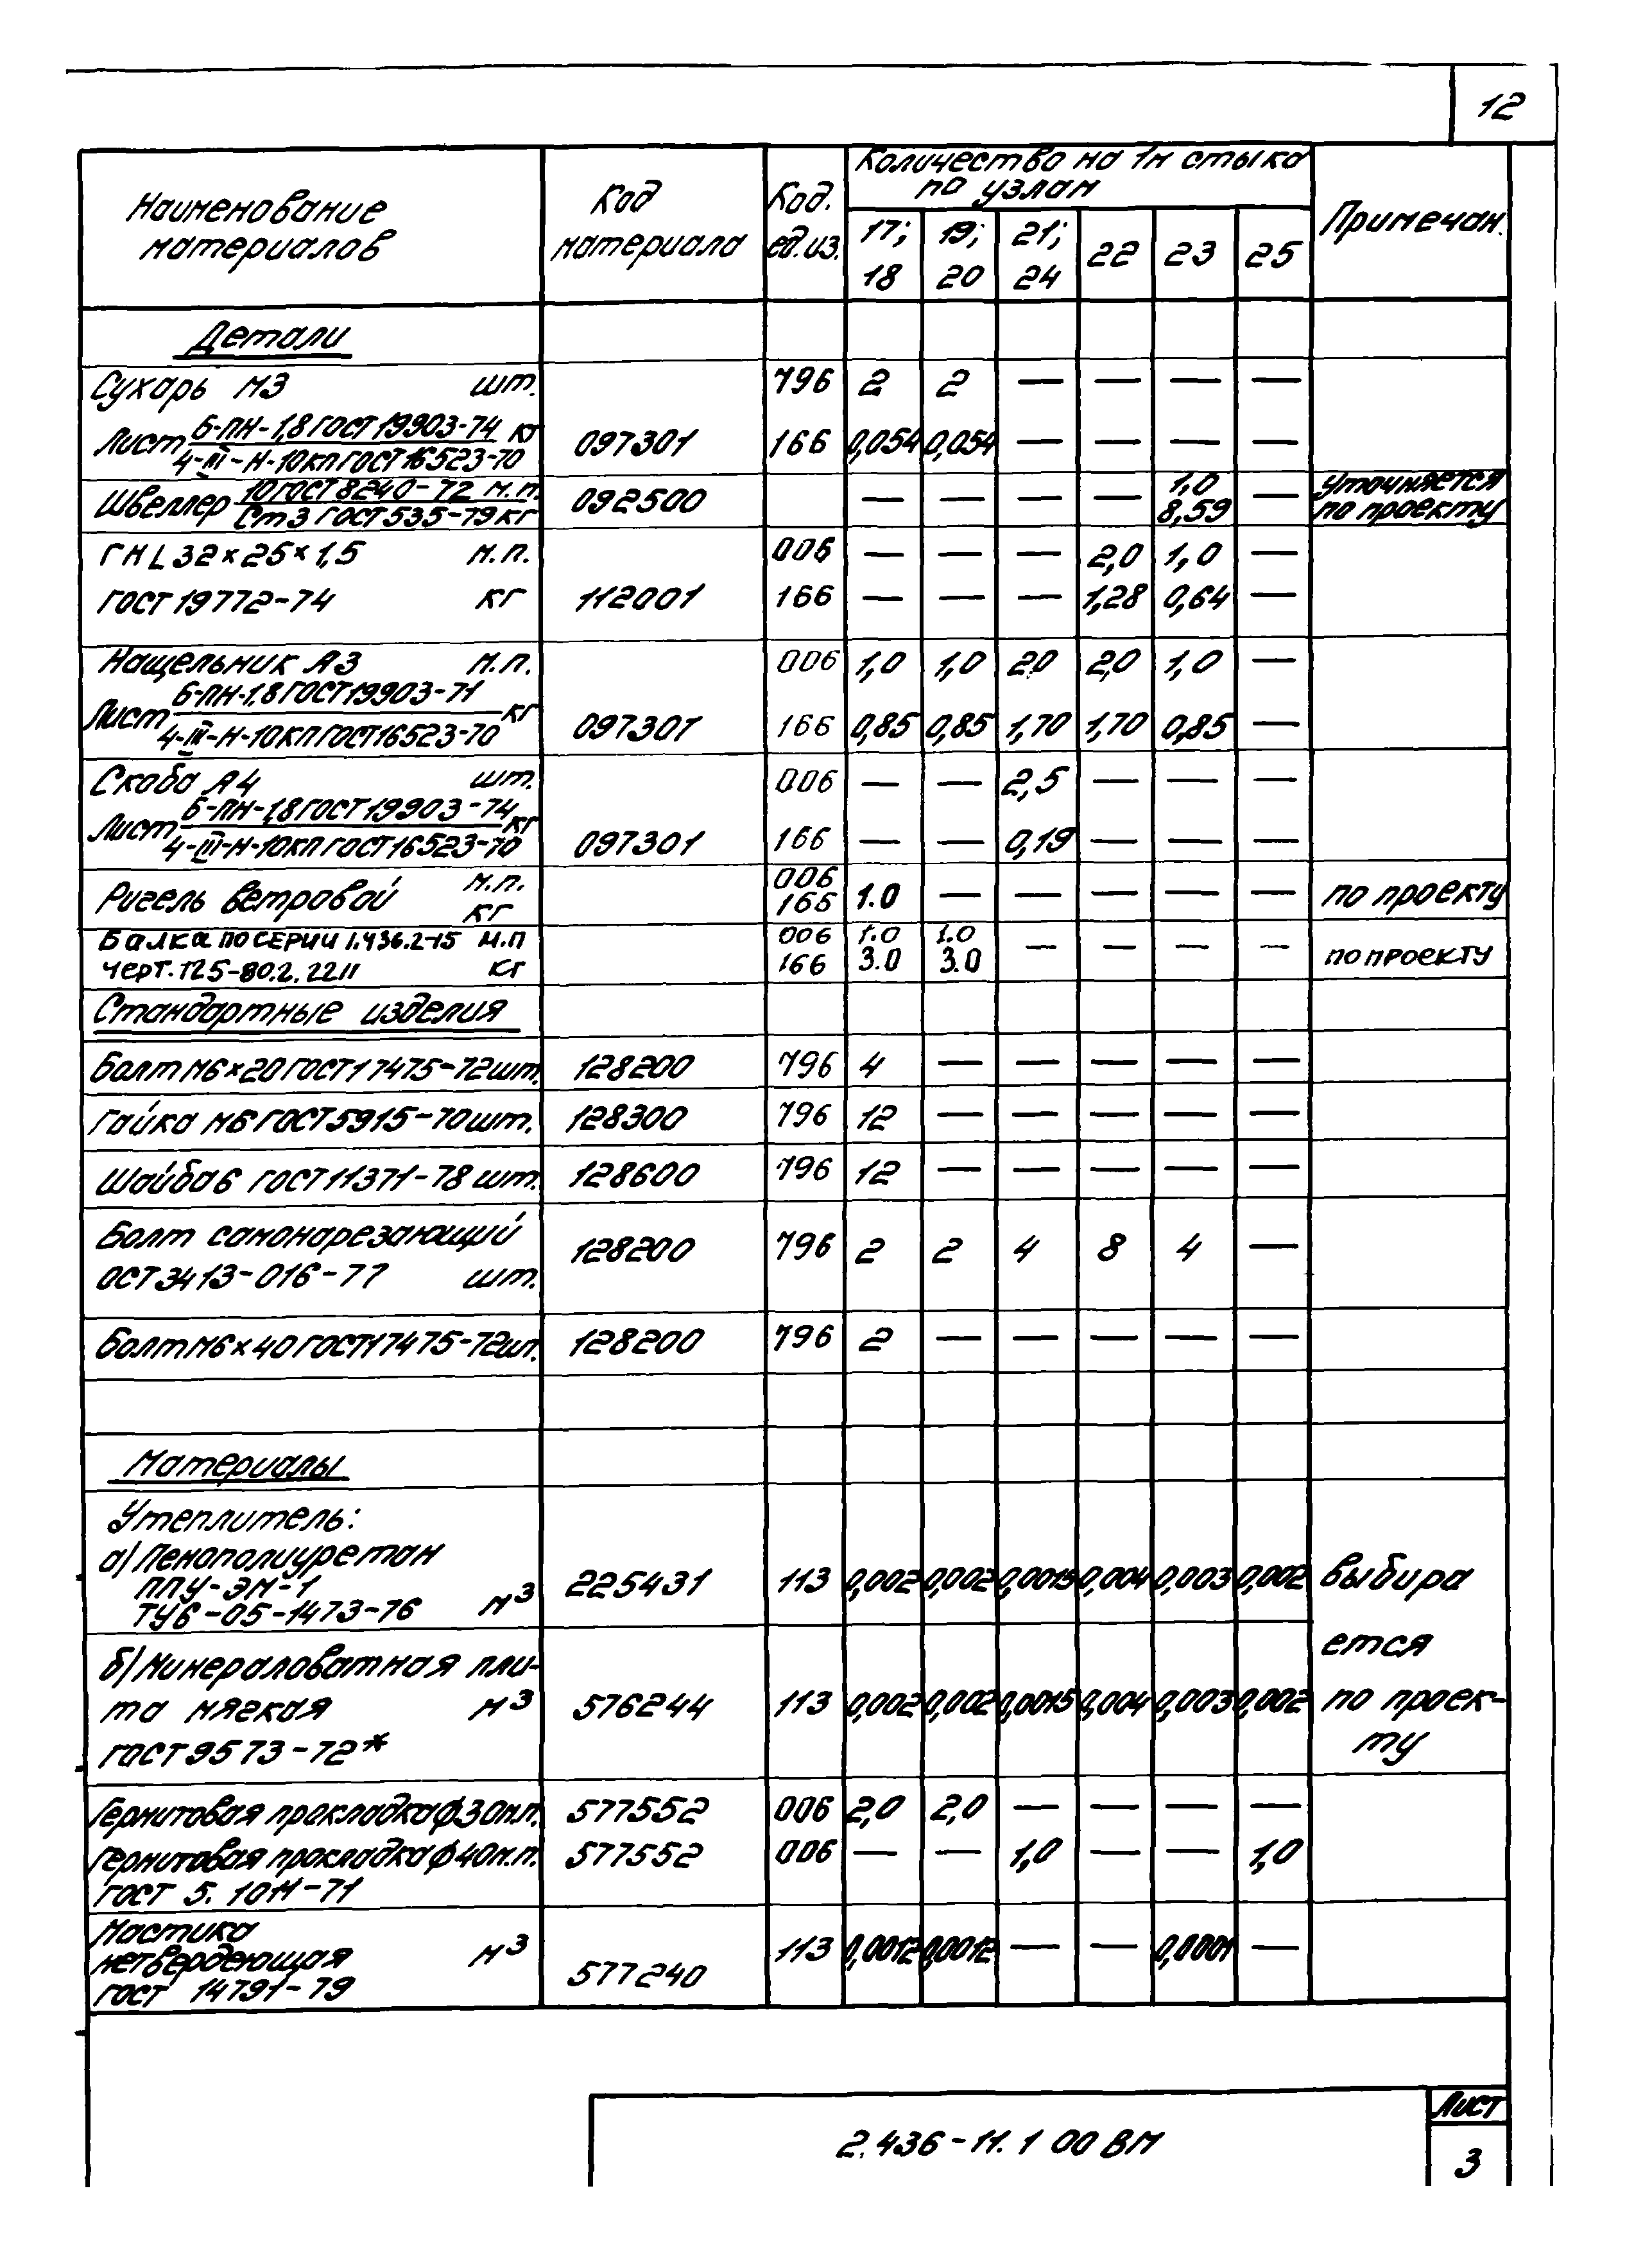 12
Наименование материалов | Код материала | Код. ед.из. | Количество на 1м стыка по узлам | Примечан.
17; 18 | 19; 20 | 21; 24 | 22 | 23 | 25
Детали
Сухарь М3 шт. 796 2 2 — — — —
Лист Б-ПН-1,8 ГОСТ 19903-74 / 4-III-Н-10кп ГОСТ 16523-70 кг 097301 166 0,054 0,054 — — — —
Швеллер 10 ГОСТ 8240-72 м.п. / Ст3 ГОСТ 535-79 кг 092500 — — — — 1,0 8,59 — уточняется по проекту
ГН L 32×25×1,5 м.п. 006 — — — 2,0 1,0 —
ГОСТ 19772-74 кг 112001 166 — — — 1,28 0,64 —
Нащельник А3 м.п. 006 1,0 1,0 2,0 2,0 1,0 —
Лист Б-ПН-1,8 ГОСТ 19903-71 / 4-III-Н-10кп ГОСТ 16523-70 кг 097301 166 0,85 0,85 1,70 1,70 0,85 —
Скоба А4 шт. 006 — — 2,5 — — —
Лист Б-ПН-1,8 ГОСТ 19903-74 / 4-III-Н-10кп ГОСТ 16523-70 кг 097301 166 — — 0,19 — — —
Ригель ветровой м.п. 006 1.0 — — — — — по проекту
кг 166
Балка по серии 1.436.2-15 м.п 006 1.0 1.0 — — — — по проекту
черт. Т25-80.2.2211 кг 166 3.0 3.0
Стандартные изделия
Болт М6×20 ГОСТ 17475-72 шт. 128200 796 4 — — — — —
Гайка М6 ГОСТ 5915-70 шт. 128300 796 12 — — — — —
Шайба 6 ГОСТ 11371-78 шт. 128600 796 12 — — — — —
Болт самонарезающий 128200 796 2 2 4 8 4 —
ОСТ 34 13-016-77 шт.
Болт М6×40 ГОСТ 17475-72 шт. 128200 796 2 — — — — —
Материалы
Утеплитель:
а) Пенополиуретан
ППУ-ЭМ-1 225431 113 0,002 0,002 0,0015 0,004 0,003 0,002 выбира
ТУ6-05-1473-76 м³
б) Минераловатная пли- ется
та мягкая м³ 576244 113 0,002 0,002 0,0015 0,004 0,003 0,002 по проек-
ГОСТ 9573-72* ту
Гернитовая прокладка ф30 м.п. 577552 006 2,0 2,0 — — — —
Гернитовая прокладка ф40 м.п. 577552 006 — — 1,0 — — 1,0
ГОСТ 5.1011-71
Мастика
нетвердеющая м³ 577240 113 0,0012 0,0012 — — 0,0001 —
ГОСТ 14791-79
2.436-11.1 00 ВМ
Лист
3